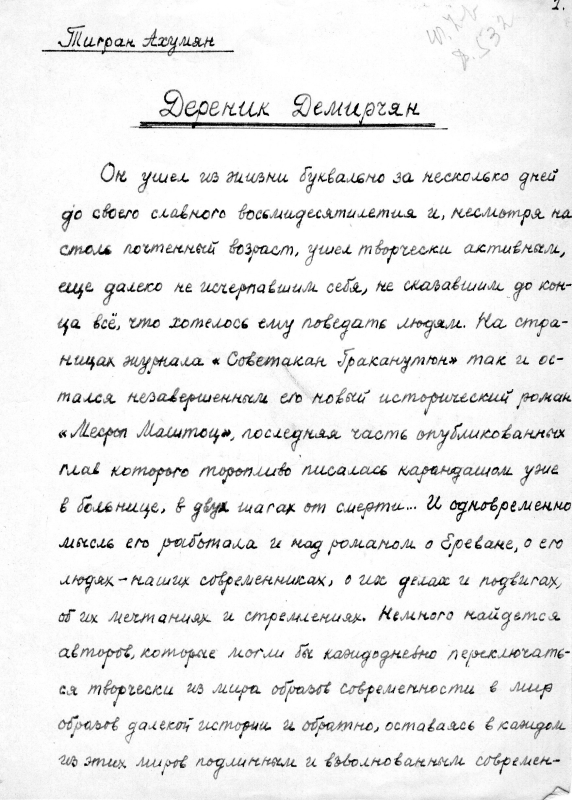 1.
Тигран Ахумян
д. 532
Дереник Демирчян
Он ушел из жизни буквально за несколько дней
до своего славного восьмидесятилетия и, несмотря на
столь почтенный возраст, ушел творчески активным,
еще далеко не исчерпавшим себя, не сказавшим до кон-
ца всё, что хотелось ему поведать людям. На стра-
ницах журнала «Советакан Граканутюн» так и ос-
тался незавершенным его новый исторический роман
«Месроп Маштоц», последняя часть опубликованных
глав которого торопливо писалась карандашом уже
в больнице, в двух шагах от смерти... И одновременно
мысль его работала и над романом о Ереване, о его
людях – наших современниках, о их делах и подвигах,
об их мечтаниях и стремлениях. Немного найдется
авторов, которые могли бы каждодневно переключать-
ся творчески из мира образов современности в мир
образов далекой истории и обратно, оставаясь в каждом
из этих миров подлинным и взволнованным современ-